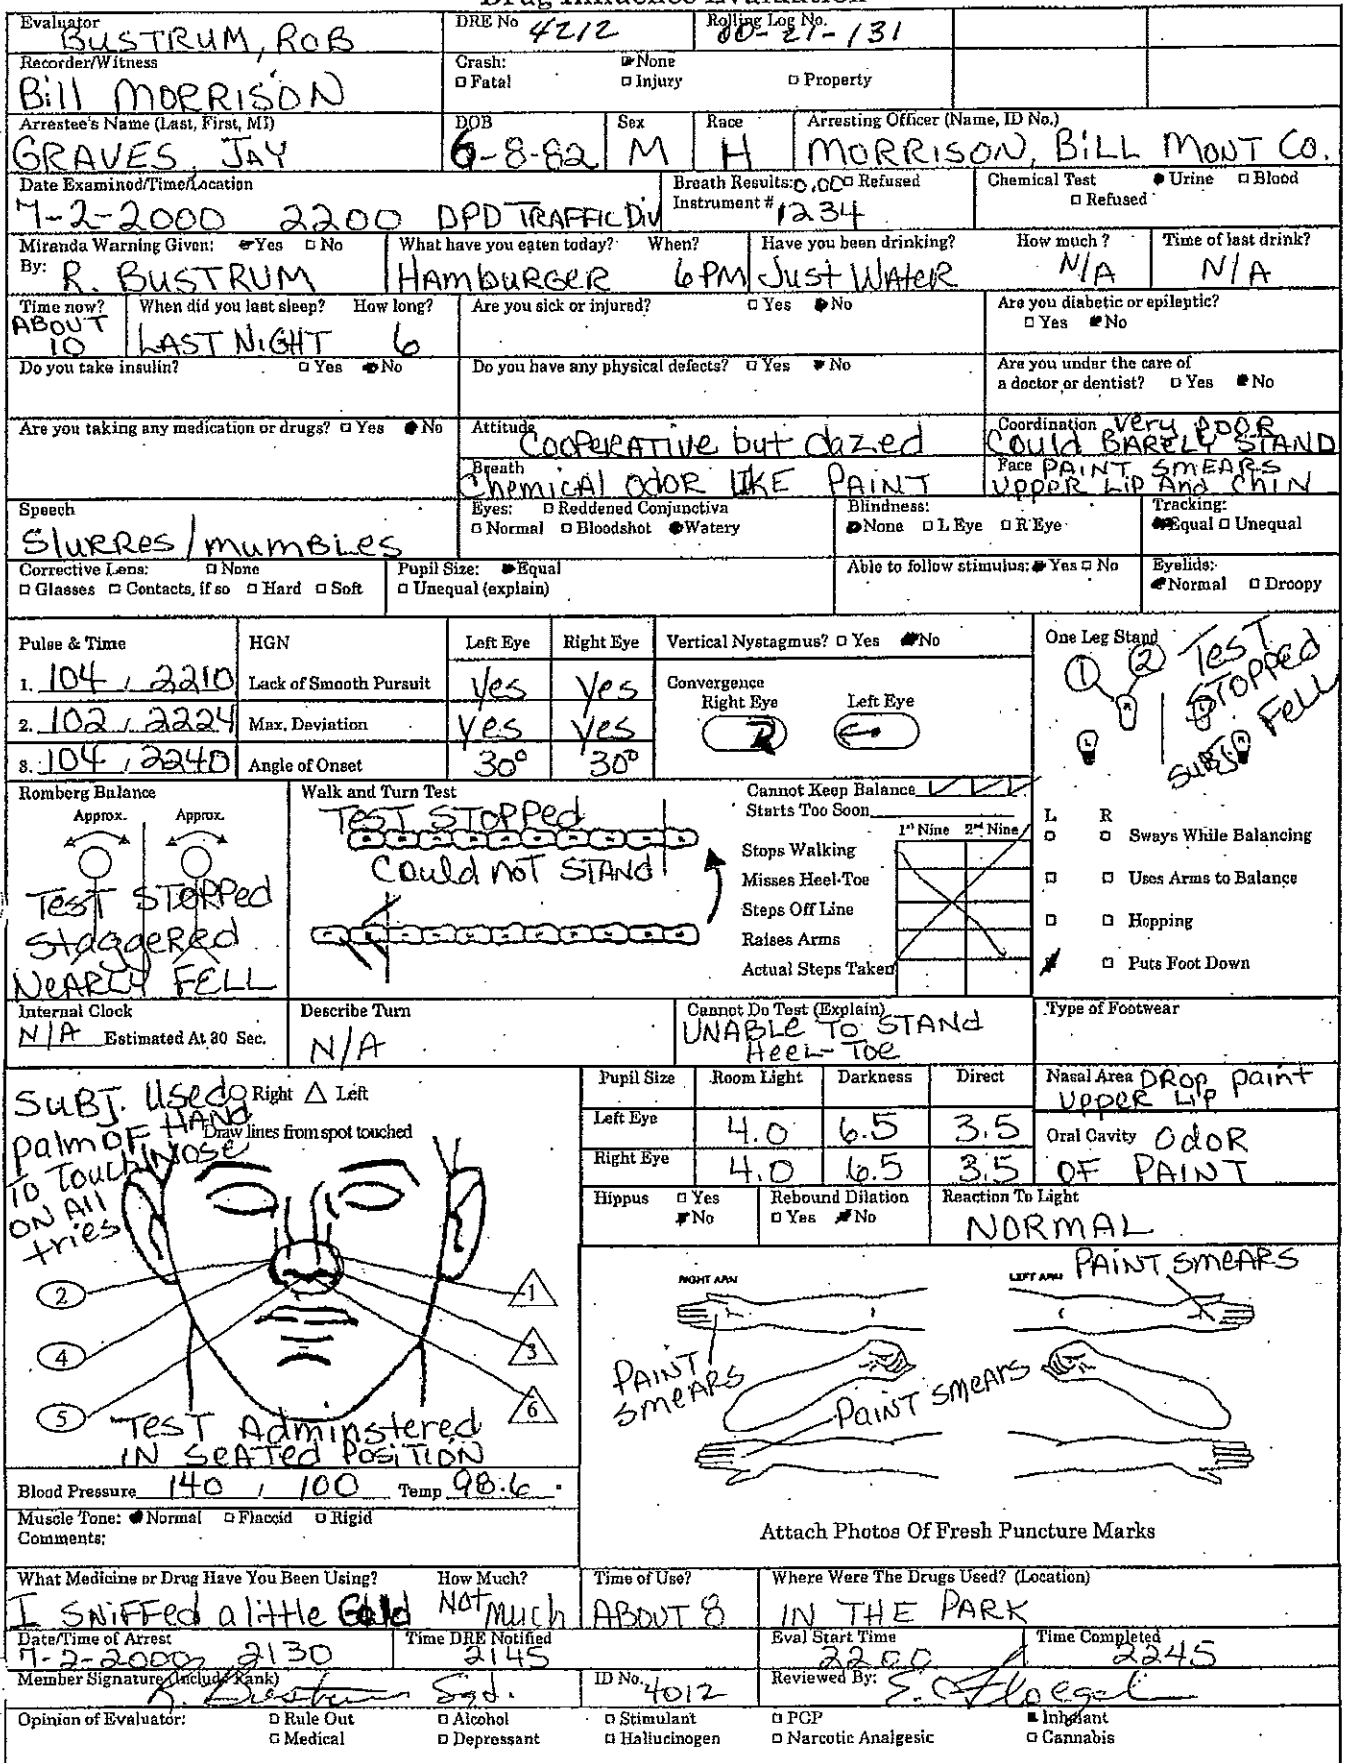 Drug Influence Evaluation
Evaluator BUSTRUM, ROB
DRE No 4212
Rolling Log No. 00-21-131
Recorder/Witness Bill MORRISON
Crash: None
Fatal Injury Property
Arrestee's Name (Last, First, MI) GRAVES, JAY
DOB 6-8-82
Sex M
Race H
Arresting Officer (Name, ID No.) MORRISON, BILL MONT CO.
Date Examined/Time/Location 7-2-2000 2200 DPD TRAFFIC DIV
Breath Results: 0.00 Refused
Instrument # 1234
Chemical Test Urine Blood
Refused
Miranda Warning Given: Yes No
By: R. BUSTRUM
What have you eaten today? When?
HAMBURGER 6PM
Have you been drinking? How much?
JUST WATER N/A
Time of last drink? N/A
Time now? ABOUT 10
When did you last sleep? How long?
LAST NIGHT 6
Are you sick or injured? Yes No
Are you diabetic or epileptic?
Yes No
Do you take insulin? Yes No
Do you have any physical defects? Yes No
Are you under the care of
a doctor or dentist? Yes No
Are you taking any medication or drugs? Yes No
Attitude COOPERATIVE but dazed
Coordination very POOR
Could BARELY STAND
Breath Chemical odor LIKE PAINT
Face PAINT SMEARS
UPPER LIP And CHIN
Speech SLURRES/mumbles
Eyes: Reddened Conjunctiva
Normal Bloodshot Watery
Blindness:
None L Eye R Eye
Tracking:
Equal Unequal
Corrective Lens: None
Glasses Contacts, if so Hard Soft
Pupil Size: Equal
Unequal (explain)
Able to follow stimulus: Yes No
Eyelids:
Normal Droopy
Pulse & Time
1. 104 / 2210
2. 102 / 2224
3. 104 / 2240
HGN Left Eye Right Eye
Lack of Smooth Pursuit yes yes
Max. Deviation yes yes
Angle of Onset 30° 30°
Vertical Nystagmus? Yes No
Convergence
Right Eye Left Eye
One Leg Stand
1 2
TEST STOPPED
SUBJ. FELL
L R
Sways While Balancing
Uses Arms to Balance
Hopping
Puts Foot Down
Romberg Balance
Approx. Approx.
TEST STOPPED
staggered
NEARLY FELL
Walk and Turn Test
TEST STOPPED
Could not STAND
Cannot Keep Balance
Starts Too Soon
1st Nine 2nd Nine
Stops Walking
Misses Heel-Toe
Steps Off Line
Raises Arms
Actual Steps Taken
Internal Clock
N/A Estimated At 30 Sec.
Describe Turn
N/A
Cannot Do Test (Explain)
UNABLE TO STANd
HEEL-TOE
Type of Footwear
SUBJ. Used
palm OF HAND
TO TOUCH NOSE
ON All
tries
Right Left
Draw lines from spot touched
2 1
4 3
5 6
TEST Adminstered
IN SEATED POSITION
Pupil Size Room Light Darkness Direct
Left Eye 4.0 6.5 3.5
Right Eye 4.0 6.5 3.5
Nasal Area DROP paint
UPPER LIP
Oral Cavity OdoR
OF PAINT
Hippus Yes
No
Rebound Dilation
Yes No
Reaction To Light
NORMAL
RIGHT ARM LEFT ARM
PAINT SMEARS
PAINT SMEARS
PAINT SMEARS
Attach Photos Of Fresh Puncture Marks
Blood Pressure 140 / 100 Temp 98.6
Muscle Tone: Normal Flaccid Rigid
Comments:
What Medicine or Drug Have You Been Using? How Much?
I SNIFFED a little Gold Not Much
Time of Use?
ABOUT 8
Where Were The Drugs Used? (Location)
IN THE PARK
Date/Time of Arrest
7-2-2000 2130
Time DRE Notified
2145
Eval Start Time
2200
Time Completed
2245
Member Signature (Include Rank)
R. Bustrum Sgt.
ID No. 4012
Reviewed By:
Opinion of Evaluator: Rule Out Alcohol Stimulant PCP Inhalant
Medical Depressant Hallucinogen Narcotic Analgesic Cannabis